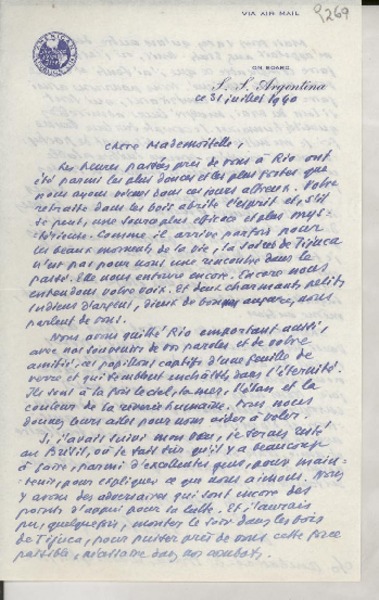 VIA AIR MAIL
9269
ON BOARD
S. S. Argentina
ce 31 juillet 1940
Chère Mademoiselle,
Les heures passées près de vous à Rio ont
été parmi les plus douces et les plus fortes que
nous ayons vécues dans ces jours affreux. Votre
retraite dans les bois abrite l'esprit et, s'il
se peut, une source plus efficace et plus mys-
térieuse. Comme il arrive parfois pour
les beaux moments de la vie, la soirée de Tijuca
n'est pas pour nous une rencontre dans le
passé. Elle nous entoure encore. Encore nous
entendons votre voix. Et deux charmants petits
Indiens d'argent, dieux de bon augure, nous
parlent de vous.
Nous avons quitté Rio emportant aussi,
avec nos souvenirs de vos paroles et de votre
amitié, ces papillons captifs d'une feuille de
verre et qui semblent enchâssés dans l'éternité.
Ils sont à la fois le ciel, la mer, l'élan et la
couleur de la rêverie humaine. Vous nous
donnez leurs ailes pour nous aider à voler.
Si j'avais suivi mon vœu, je serais resté
au Brésil, où je sais qu'il y a beaucoup
à faire, parmi d'excellentes gens, pour main-
tenir, pour expliquer ce que nous aimons. Nous
y avons des adversaires qui sont encore des
points d'appui pour la lutte. Et j'aurais
pu, quelquefois, monter le soir dans les bois
de Tijuca, pour puiser près de vous cette force
paisible, nécessaire dans nos combats.